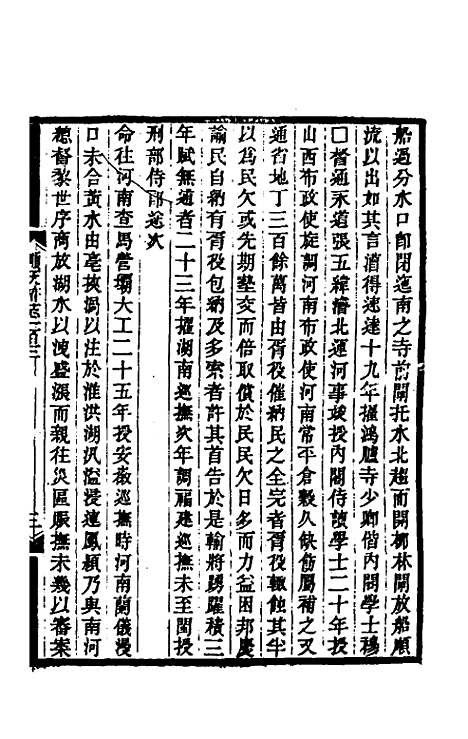 船過分水口卽閉迤南之寺前閘托水北趨而開柳林閘放船順
流以出如其言漕得速達十九年擢鴻臚寺少卿偕內閣學士穆
□督通永道張五緯濬北運河事竣授內閣侍讀學士二十年授
山西布政使旋調河南布政使河南常平倉穀久缺飭屬補之又
通省地丁三百餘萬皆由胥役催納民之全完者胥役輒蝕其半
以爲民欠或先期墊交而倍取償於民民欠日多而力益困邦慶
諭民自納有胥役包納及多索者許其首告於是輸將踴躍積三
年賦無逋者二十三年擢湖南巡撫次年調福建巡撫未至閩授
刑部侍郎遂次
命往河南查馬營壩大工二十五年授安徽巡撫時河南蘭儀漫
口未合黃水由亳挾渦以注於淮洪湖汎溢浸連鳳潁乃與南河
總督黎世序商放湖水以洩盛漲而親往災區賑撫未幾以審案